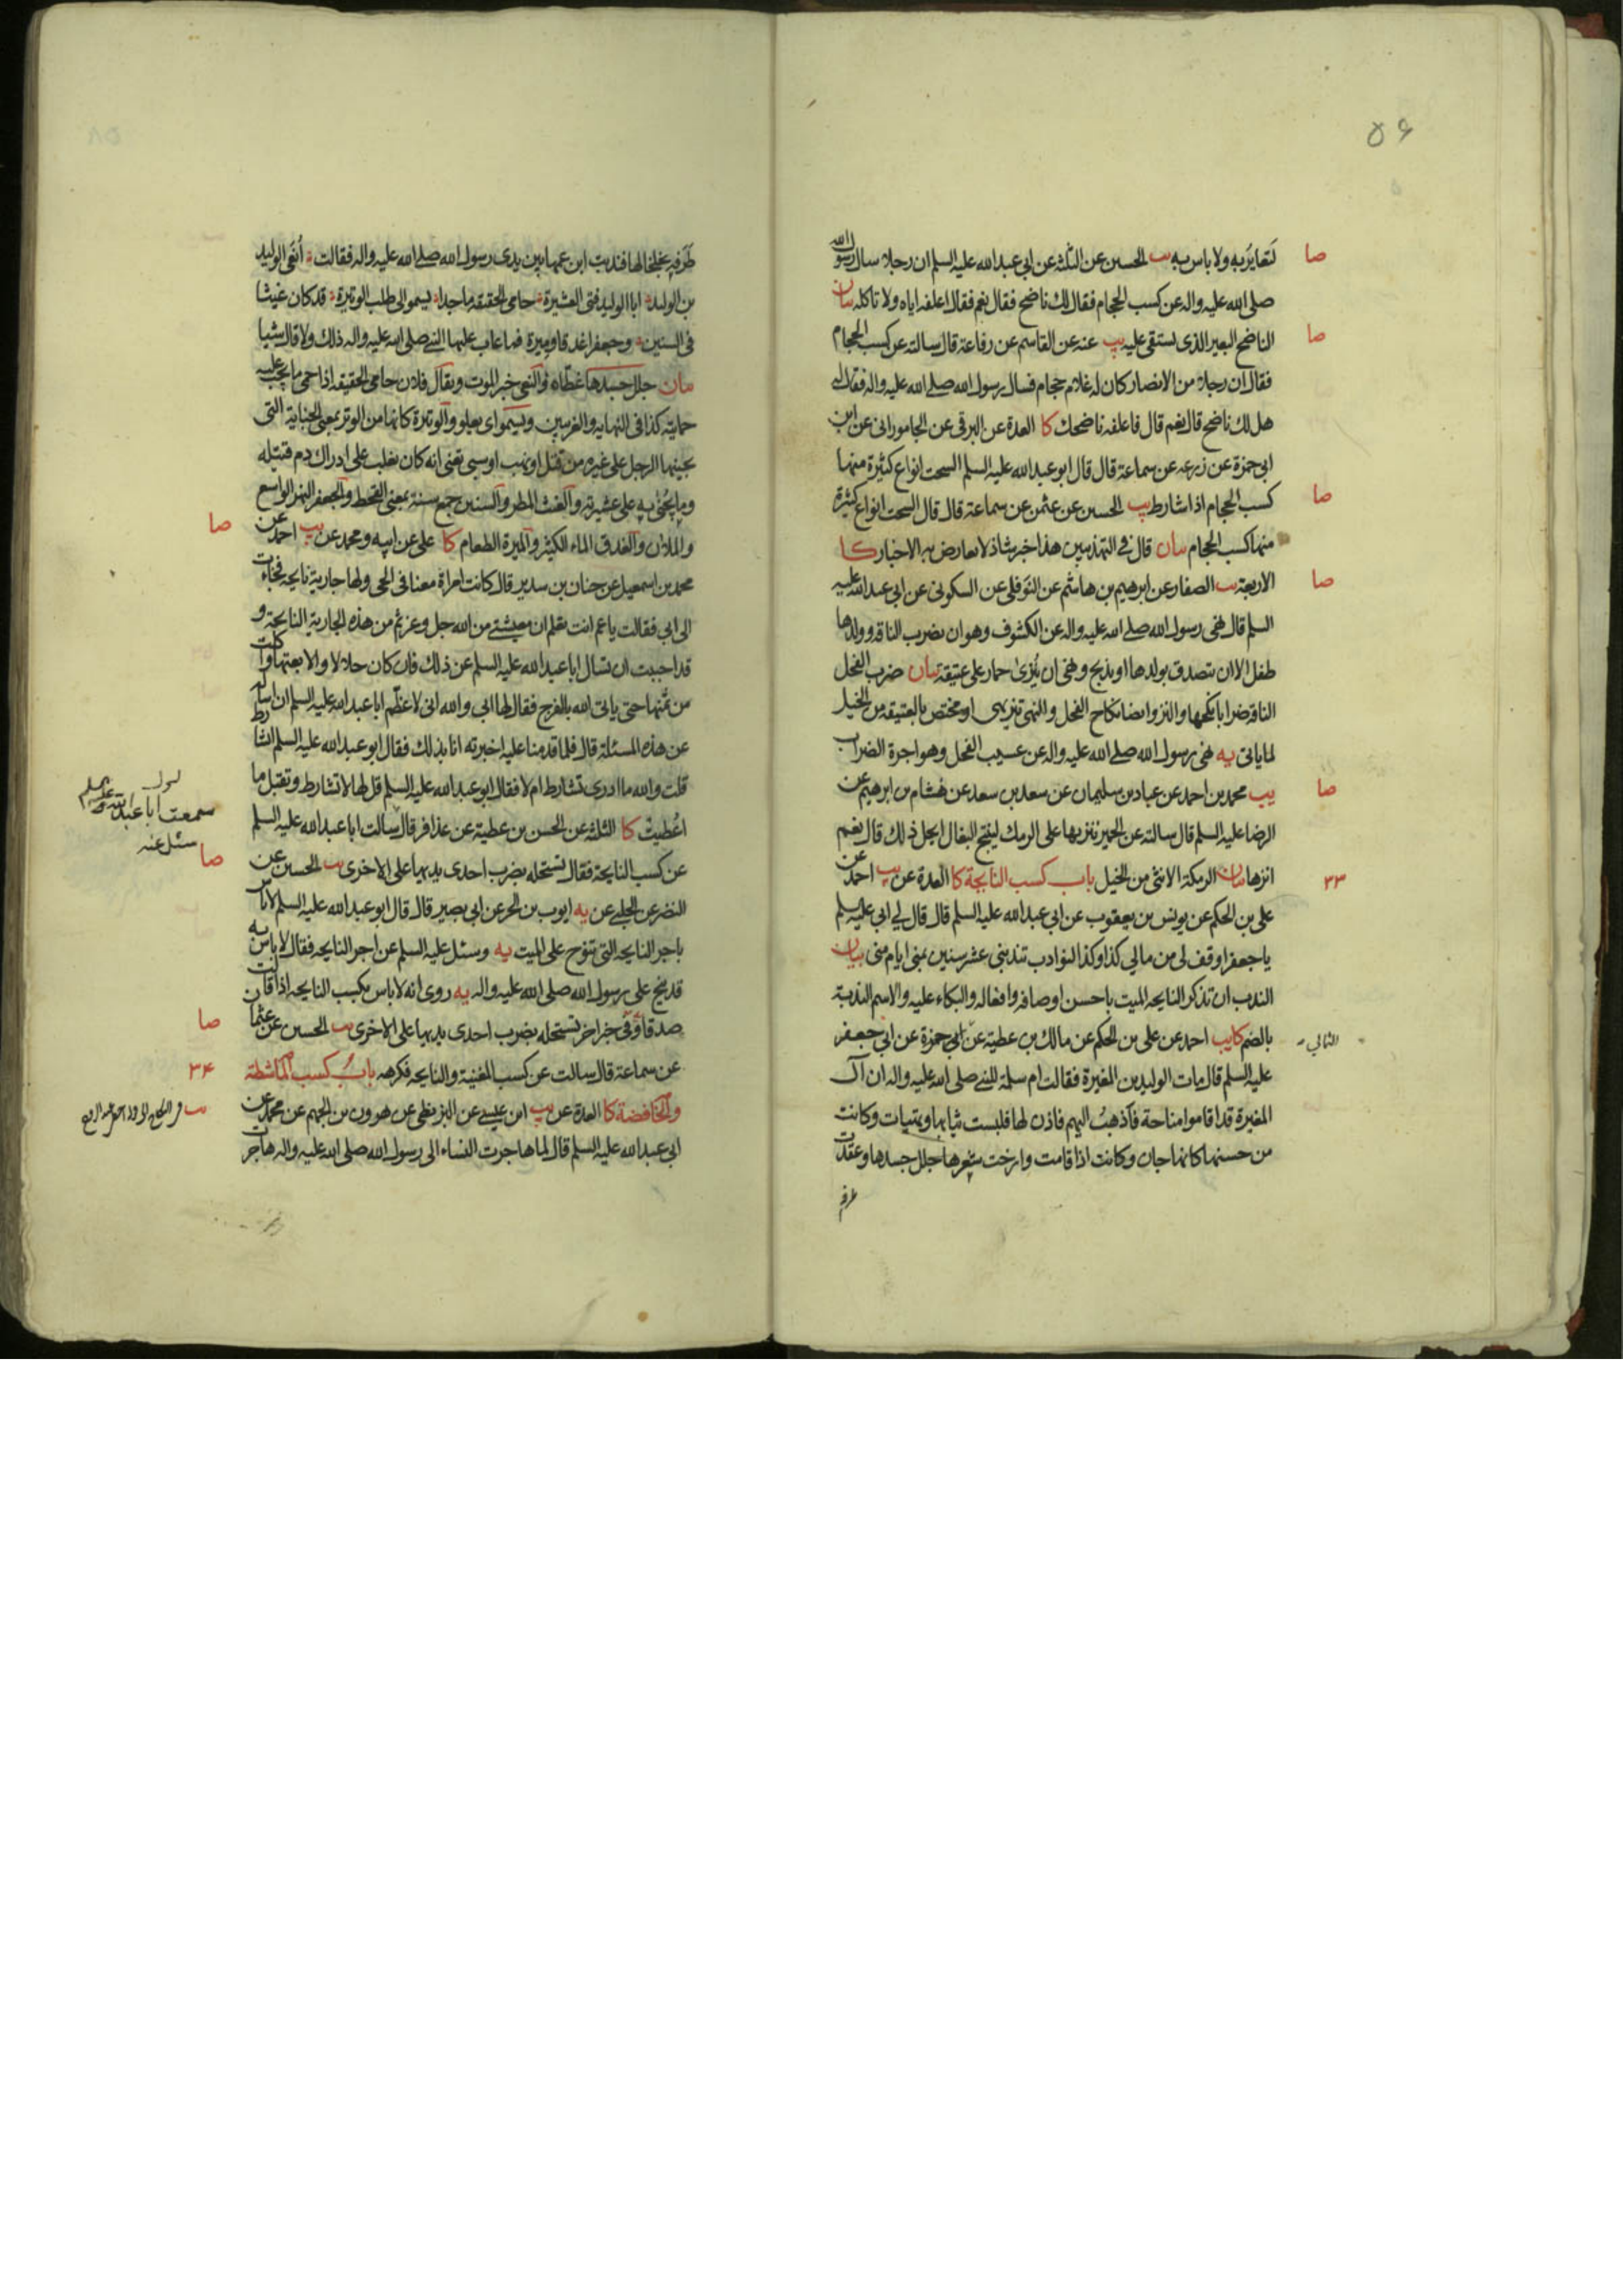 ٥۶
لتعايَرَ به ولا باس به يب الحسين عن الثلثة عن ابي عبد الله عليه السلم ان رجلا سال رسول الله
صلى الله عليه واله عن كسب الحجام فقال لك ناضح فقال نعم فقال اعلفه اياه ولا تاكله بيان
الناضح البعير الذي يستقى عليه يب عنه عن القاسم عن رفاعة قال سالته عن كسب الحجام
فقال ان رجلا من الانصار كان له غلام حجام فسال رسول الله صلى الله عليه واله فقال له
هل لك ناضح قال نعم قال فاعلفه ناضحك كا العدة عن البرقي عن الجاموراني عن ابن
ابي حمزة عن زرعه عن سماعة قال قال ابو عبد الله عليه السلم السحت انواع كثيرة منها
كسب الحجام اذا شارط يب الحسين عن عثمن عن سماعة قال قال السحت انواع كثيرة
منها كسب الحجام بيان قال في التهذيبين هذا خبر شاذ لا يعارض به الاخبار كا
الاربعة يب الصفار عن ابرهيم بن هاشم عن النوفلي عن السكوني عن ابي عبد الله عليه
السلم قال نهى رسول الله صلى الله عليه واله عن الكشوف وهو ان يضرب الناقة وولدها
طفل الا ان تصدق بولدها او يذبح ونهى ان يُنزى حمار على عتيقة بيان ضرب الفحل
الناقة ضرابا نكحها والنزو ايضا نكاح الفحل والنهي تنزيهي او مختص بالعتيقة من الخيل
لما ياتي يه نهى رسول الله صلى الله عليه واله عن عسيب الفحل وهو اجرة الضراب
يب محمد بن احمد عن عباد بن سليمان عن سعد بن سعد عن هشام بن ابرهيم عن
الرضا عليه السلم قال سالته عن الحمير ننزيها على الرمك لينتج البغال ايحل ذلك قال نعم
انزها بيان الرمكة الانثى من الخيل باب كسب النايحة كا العدة عن يب احمد عن
على بن الحكم عن يونس بن يعقوب عن ابي عبد الله عليه السلم قال قال لي ابي عليه السلم
يا جعفر اوقف لي من مالي كذا وكذا النوادب تندبني عشر سنين بمنى ايام منى بيان
الندب ان تذكر النايحة الميت باحسن اوصافه وافعاله والبكاء عليه والاسم الندبة
بالضم كا يب احمد عن على بن الحكم عن مالك بن عطية عن ابي حمزة عن ابي جعفر
عليه السلم قال مات الوليد بن المغيرة فقالت ام سلمة للنبي صلى الله عليه واله ان آل
المغيرة قد اقاموا مناحة فأذهبُ اليهم فاذن لها فلبست ثيابها وتهيات وكانت
من حسنها كانها جان وكانت اذا قامت وارخت شعرها جلل جسدها وعقدت
طرفيه
صا
صا
صا
صا
صا
٣٣
الثمالي
طَرَفيه بخلخالها فندبت ابن عمها بين يدى رسول الله صلى الله عليه واله فقالت أَنعَى الوليد
بن الوليد ابا الوليد فتى العشيرة حامى الحقيقة ماجدا يسموا لى طلب الوتيرة قد كان غيثا
فى السنين وجعفرا غدقا وميرة فما عاب عليها النبي صلى الله عليه واله ذلك ولا قال شيا
بيان جلل جسدها غطاه والنعى خبر الموت ويقال فلان حامى الحقيقة اذا حمى ما يجب عليه
حمايته كذا فى النهاية والغريبين ويسموا اى يعلو والوتيرة كانها من الوتر بمعنى الجناية التى
يجنيها الرجل على غيره من قتل او نهب او سبى تعنى انه كان يغلب على ادراك دم قتيله
وما يُجنى به على عشيرته والغيث المطر والسنين جمع سنة بمعنى القحط والجعفر النهر الواسع
والملآن والغدق الماء الكثير والميرة الطعام كا على عن ابيه ومحمد عن يب احمد عن
محمد بن اسمعيل عن حنان بن سدير قال كانت امراة معنا فى الحى ولها جارية نايحة فجاءت
الى ابي فقالت يا عم انت تعلم ان معيشتى من الله جل وعز ثم من هذه الجارية النايحة و
قد احببت ان تسال ابا عبد الله عليه السلم عن ذلك فان كان حلالا والا بعتها واكلت
من ثمنها حتى ياتى الله بالفرج فقال لها ابي والله انى لاعظم ابا عبد الله عليه السلم ان اساله
عن هذه المسئلة قال فلما قدمنا عليه اخبرته انا بذلك فقال ابو عبد الله عليه السلم اتشارط
قلت والله ما ادرى تشارط ام لا فقال ابو عبد الله عليه السلم قل لها لا تشارط وتقبل ما
اعُطيت كا الثلثة عن الحسن بن عطية عن عذافر قال سالت ابا عبد الله عليه السلم
عن كسب النايحة فقال تستحله بضرب احدى يديها على الاخرى يب الحسين عن
النضر عن الحلبى عن يه ايوب بن الحر عن ابي بصير قال قال ابو عبد الله عليه السلم لا باس
باجر النايحة التى تنوح على الميت يه وسئل عليه السلم عن اجر النايحة فقال لا باس به
قد نيح على رسول الله صلى الله عليه واله يه روى انه لا باس بكسب النايحة اذا قالت
صدقا وفى خبر اخر تستحله بضرب احدى يديها على الاخرى يب الحسين عن عثمان
عن سماعة قال سالت عن كسب المغنية والنايحة فكرهه باب كسب الماشطة
والخافضة كا العدة عن يب ابن عيسى عن البزنطى عن هرون بن الجهم عن محمد عن
ابي عبد الله عليه السلم قال لما هاجرت النساء الى رسول الله صلى الله عليه واله هاجرت
صا
سمعت ابا عبد الله عليه السلم
سئل عنه
صا
صا
٣۴